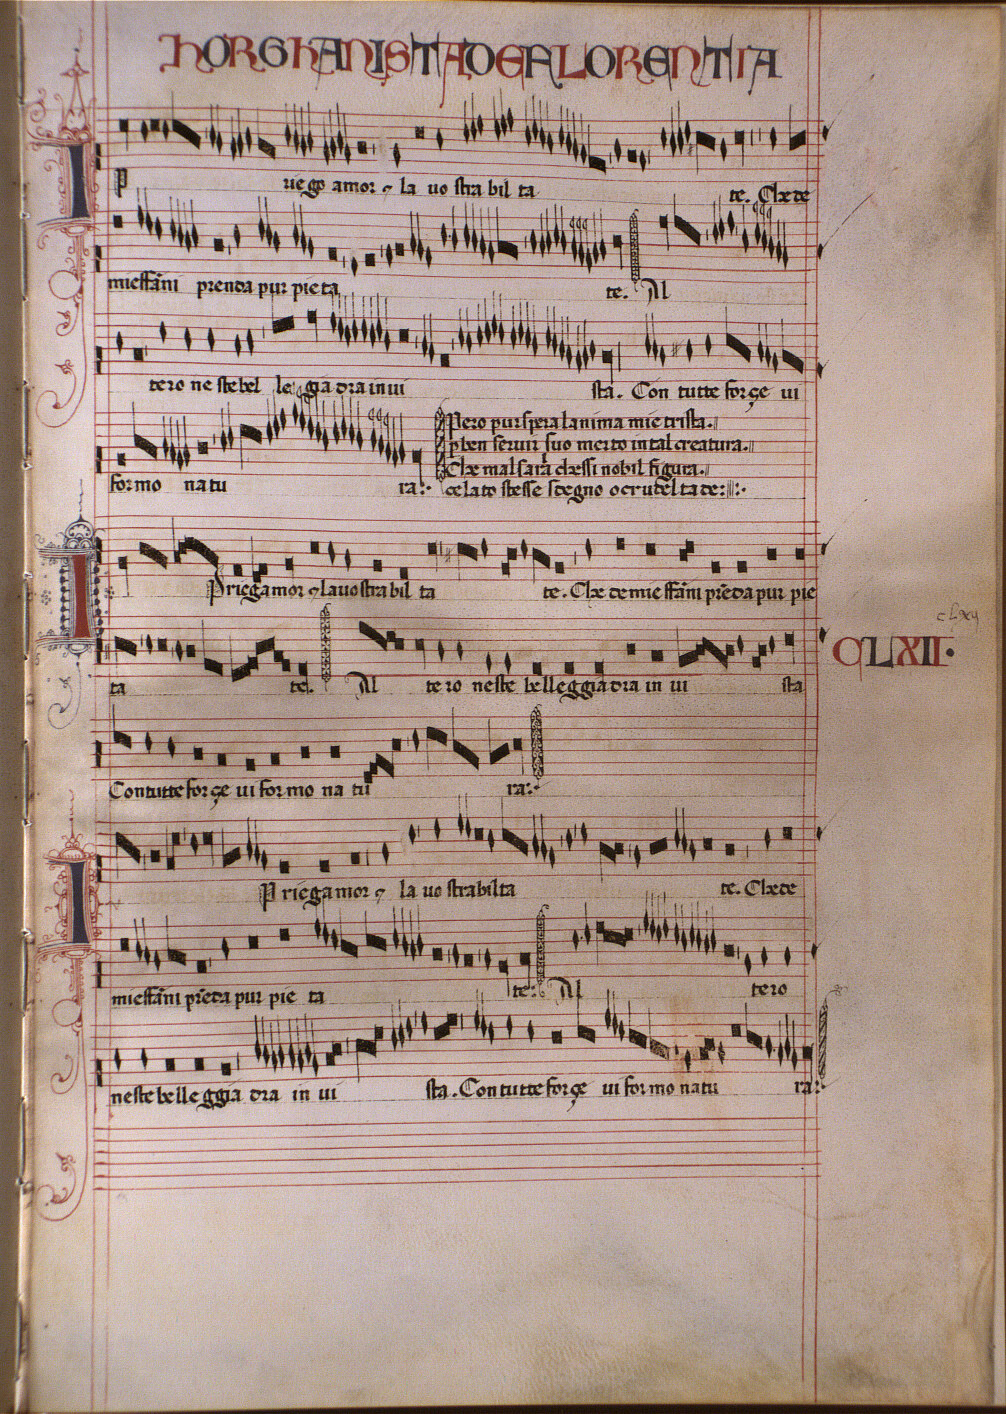 HORGHANISTA DE FLORENTIA
I Priego amor e la vostra bil ta te. Che de
mi essani prenda pur pie ta te. Al
tero ne ste bel le gia dra in vi sta. Con tutte forçe vi
Pero pur spera lanima mie trista.
p ben servir suo merto in tal creatura.
Che mal saria chessi nobil figura.
for mo na tu ra: celato stesse sdegno o crudel tade:
I Priegamor e la vo stra bil ta te. Che de mie ssani preda pur pie
clxij
CLXII.
ta te. Al te ro ne ste be lle ggia dra in vi sta
Con tutte for çe vi for mo na tu ra:
I Priegamor e la vo stra bil ta te. Che de
mie ssani preda pur pie ta te: Al te ro
ne ste be lle ggia dra in vi sta. Con tutte for çe vi for mo na tu ra: